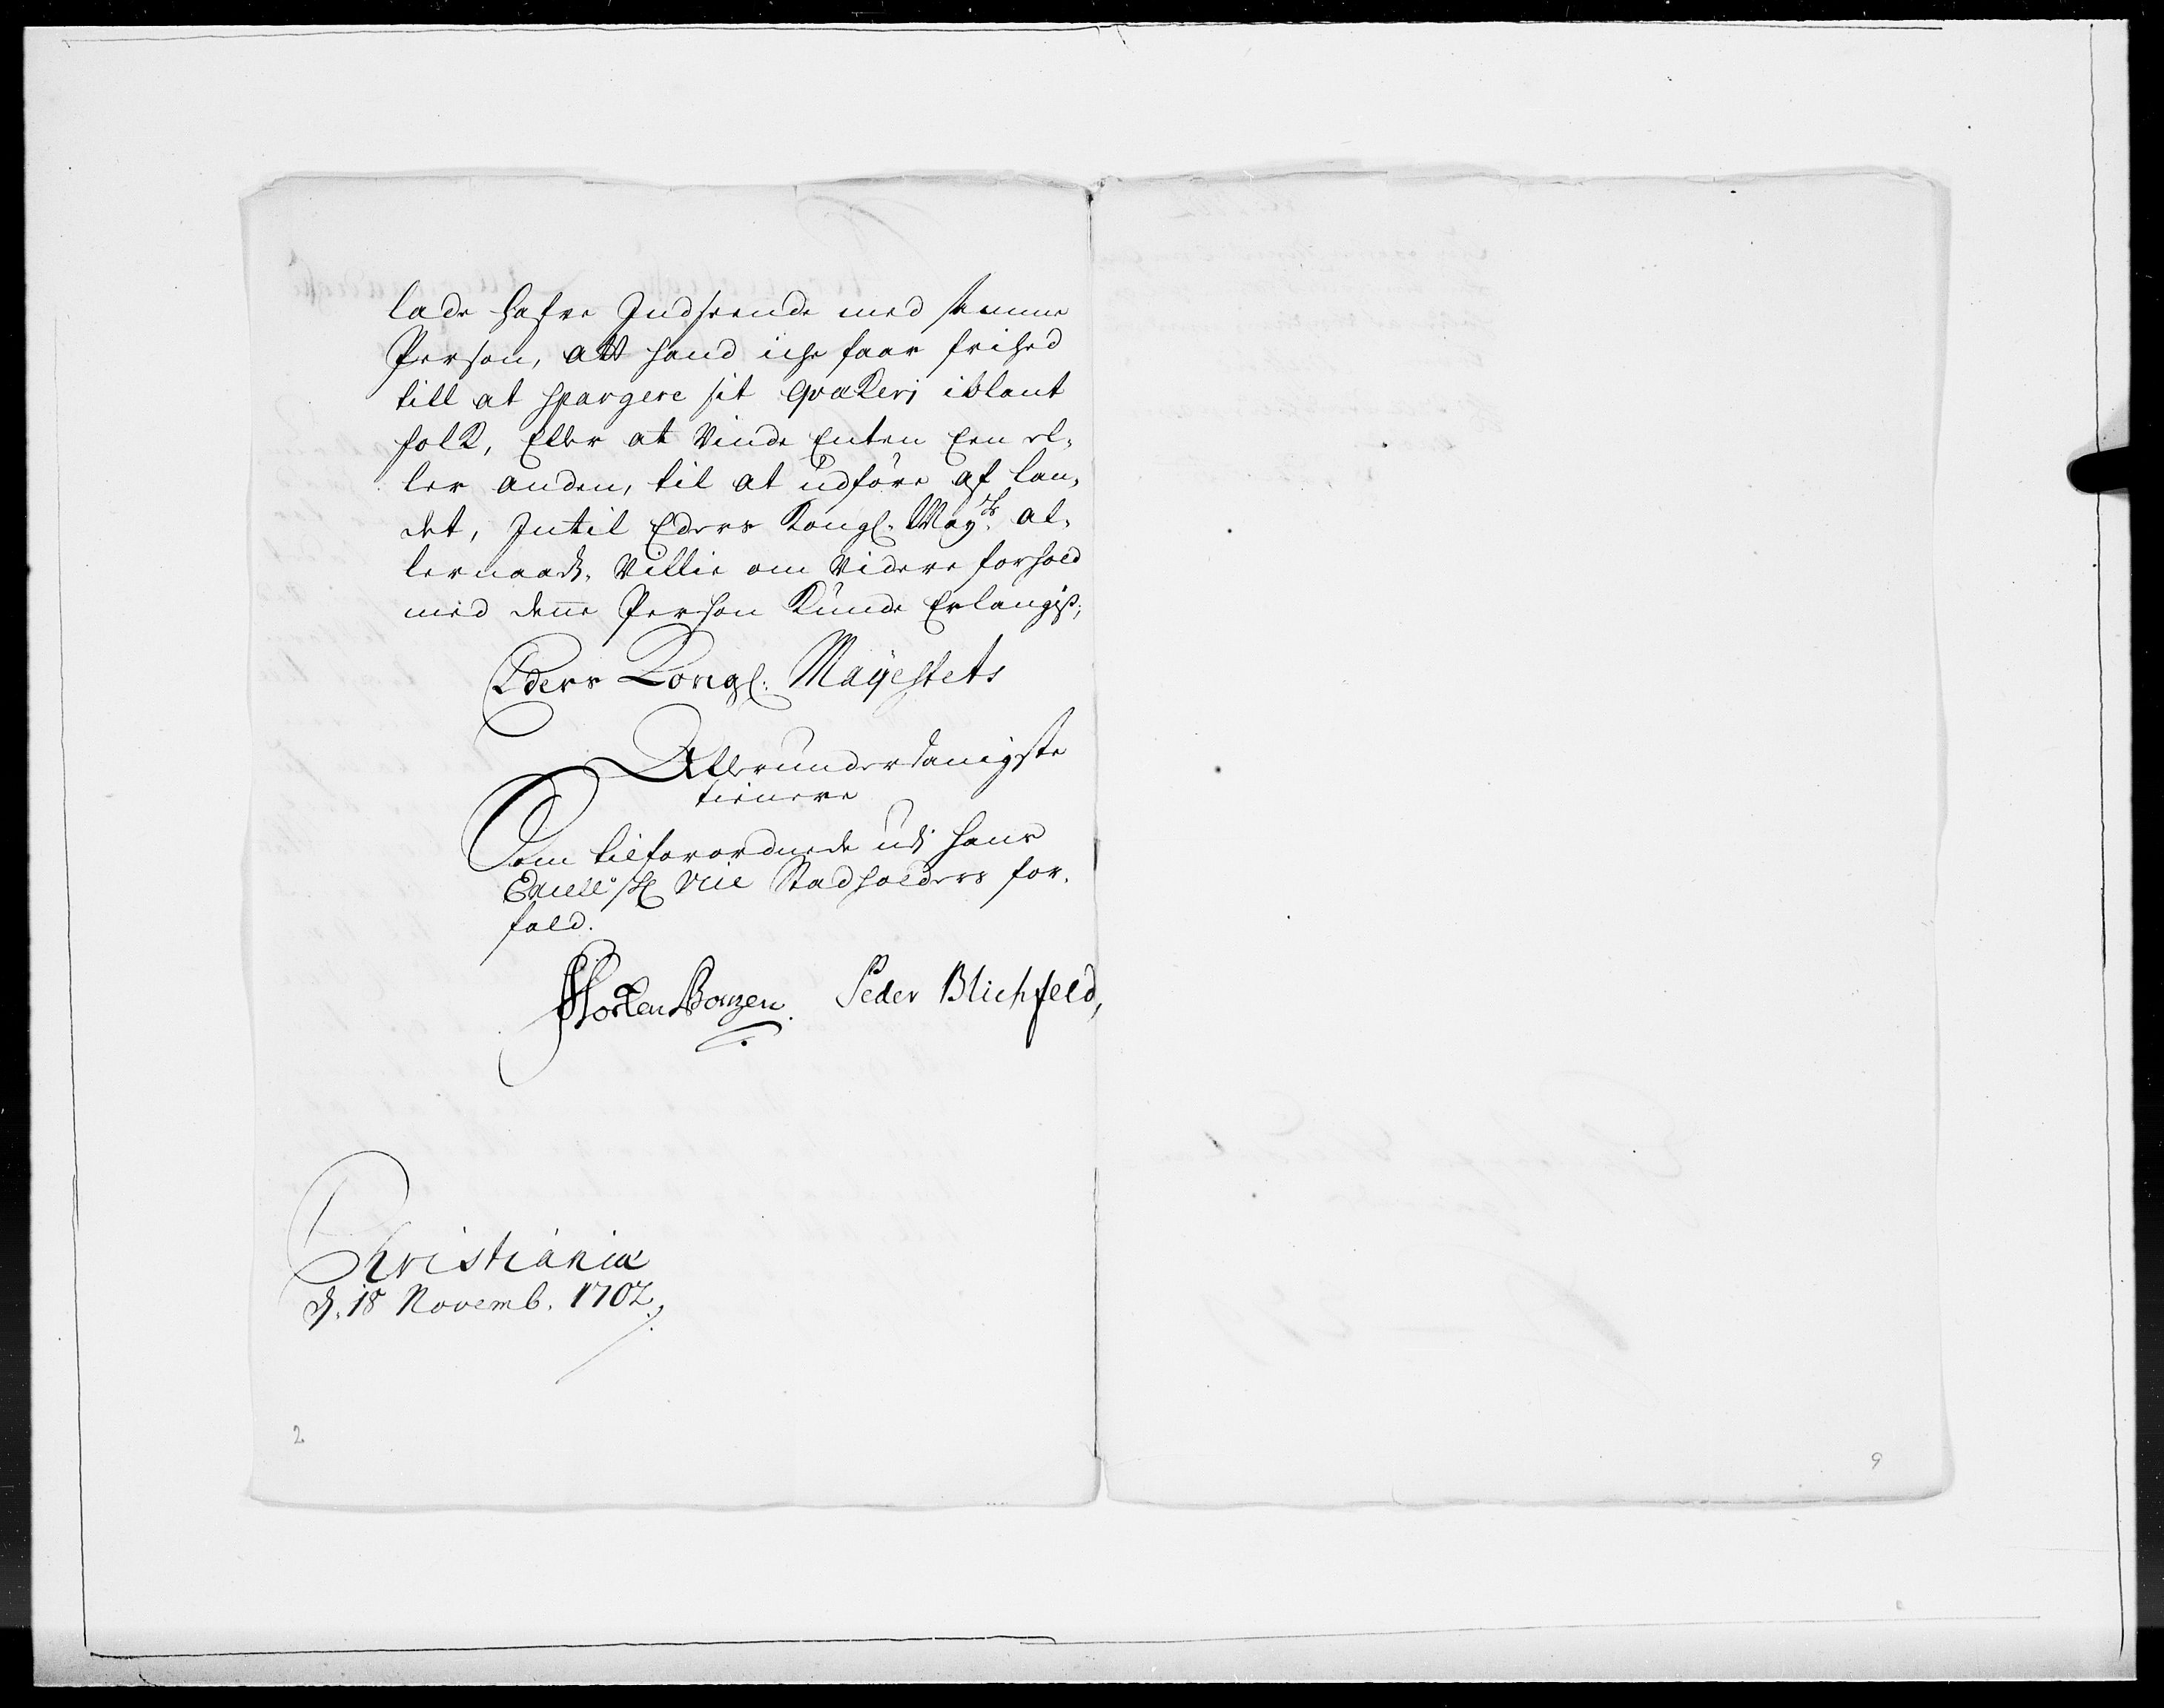 lade hafve Indseende med samme
Person, att hand iche faar frihed
till at spargere sit qvakeri iblant
folk, Eller at Vinde Enten Een el,
ler anden, til at udföre af lan,
det, Intil Eders Kongl. May.ts al,
lernaad. Villie om Videre forhold
med denne Person kunde Erlangis,
Eders Kongl. Mayestets
Allerunderdanigste
tienere
Som tilforordnede udi hans
Excell. Vice Stadholders for,
fald.
Peder Blichfeld,
Christiania
d. 18 Novemb. 1702.
2
9